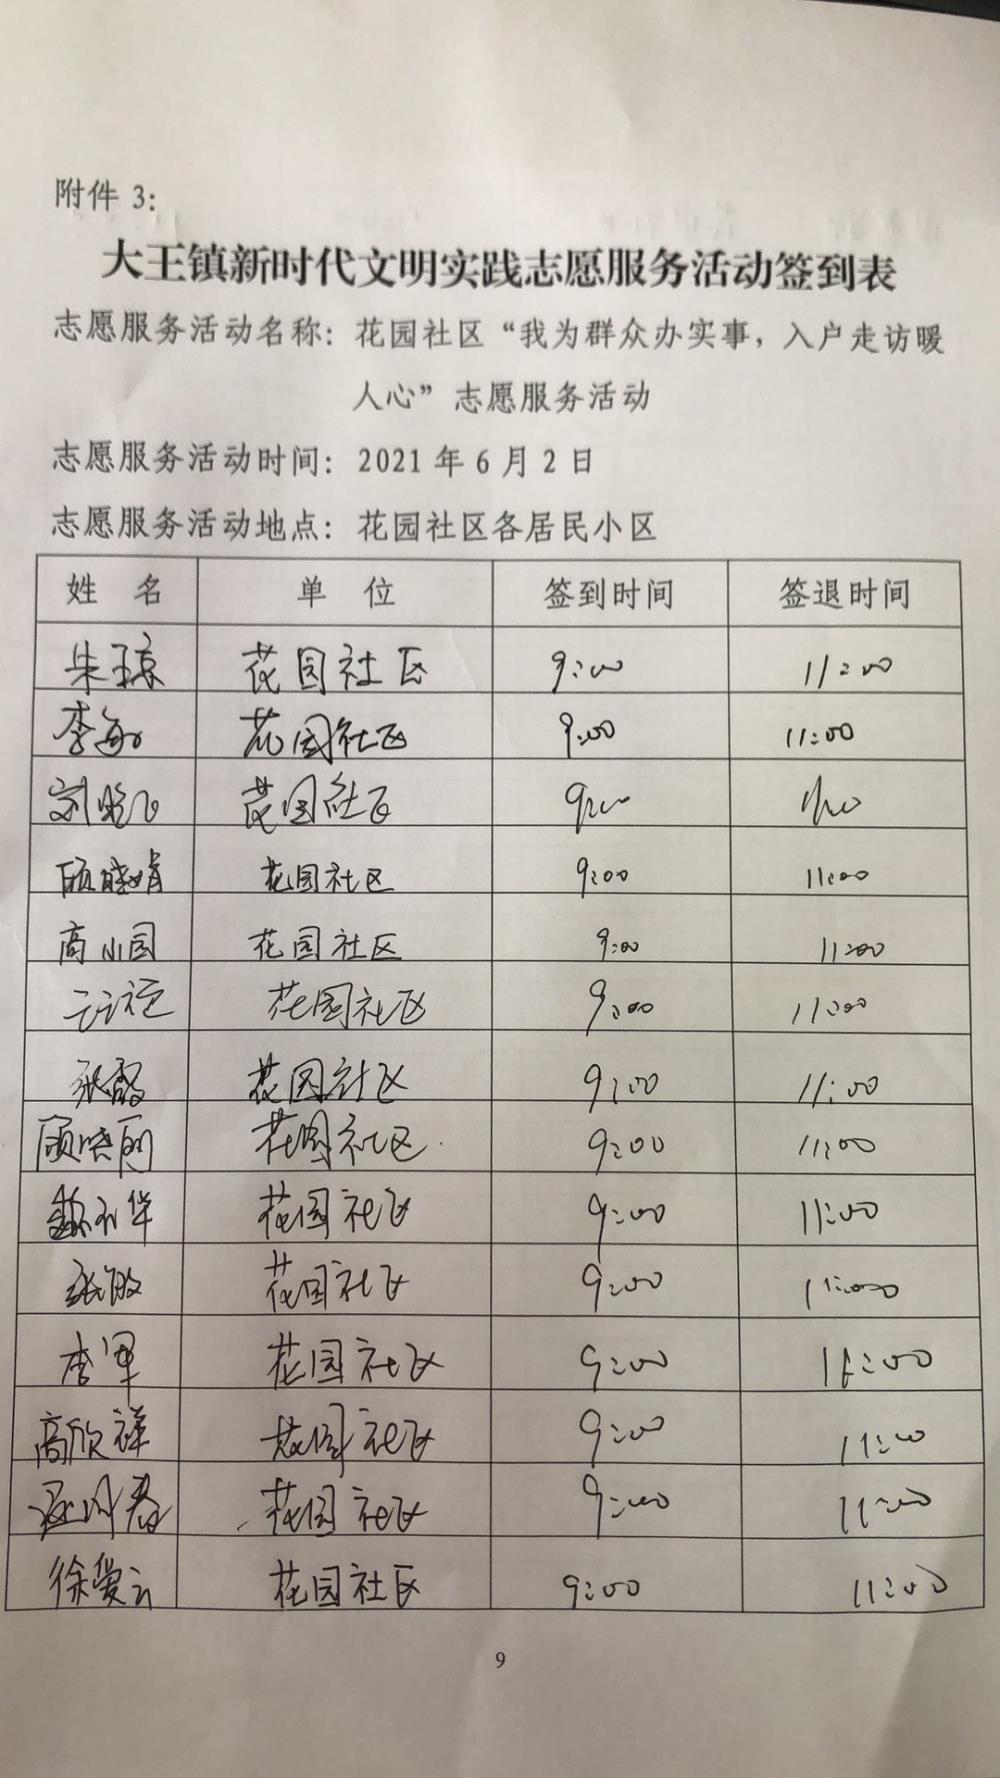 附件 3:
大王镇新时代文明实践志愿服务活动签到表
志愿服务活动名称: 花园社区“我为群众办实事, 入户走访暖
人心”志愿服务活动
志愿服务活动时间: 2021 年 6 月 2 日
志愿服务活动地点: 花园社区各居民小区
姓 名 单 位 签到时间 签退时间
朱玉琼 花园社区 9:00 11:00
李敏 花园社区 9:00 11:00
刘晓飞 花园社区 9:00 11:00
顾晓娟 花园社区 9:00 11:00
高小园 花园社区 9:00 11:00
花园社区 9:00 11:00
张霞 花园社区 9:00 11:00
顾晓丽 花园社区 9:00 11:00
魏永华 花园社区 9:00 11:00
张敏 花园社区 9:00 11:00
李军 花园社区 9:00 11:00
高欣祥 花园社区 9:00 11:00
花园社区 9:00 11:00
徐爱云 花园社区 9:00 11:00
9